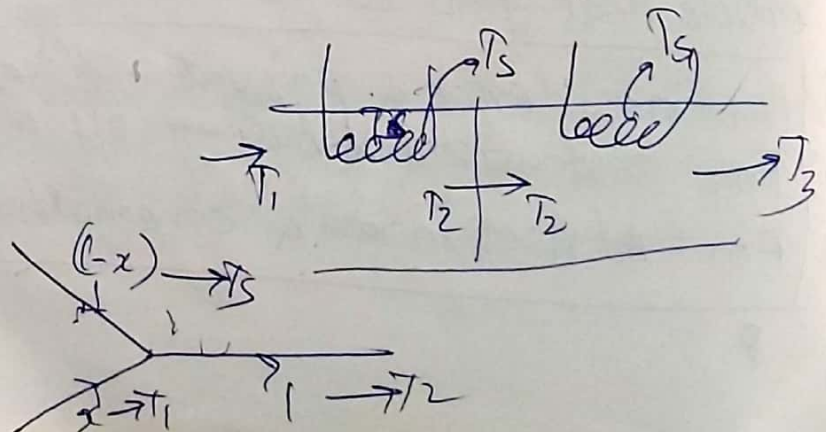 T5 T5
T1 T2 T2 T3
(1-x) → T5
x → T1 1 → T2